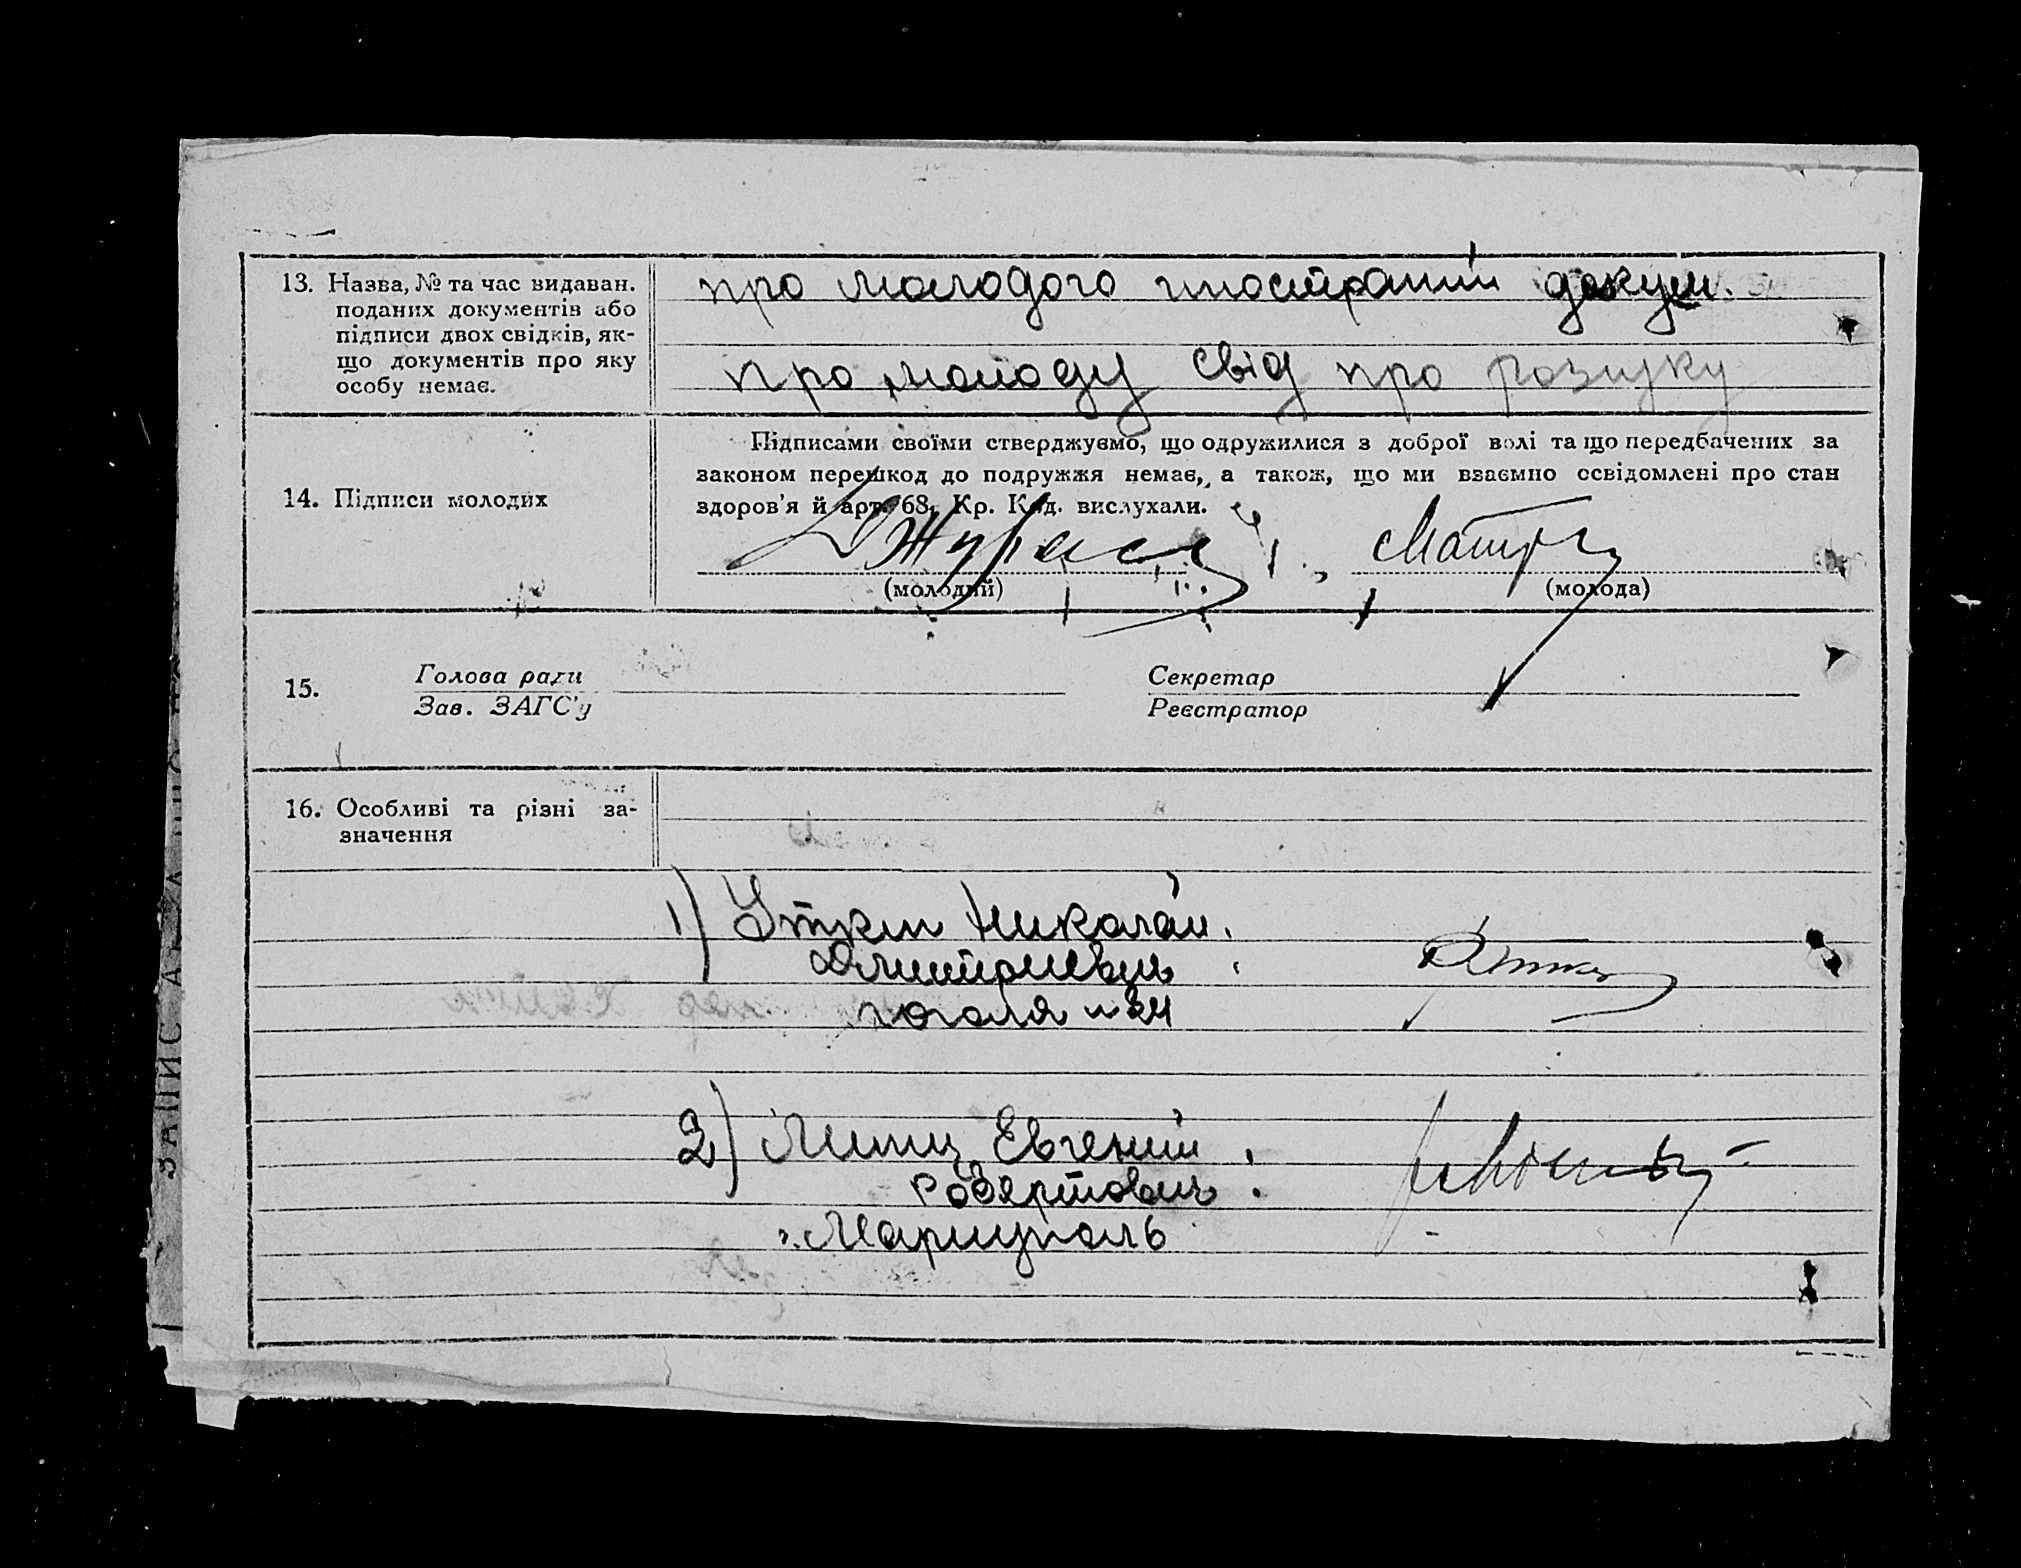 13. Назва, № та час видаван.
поданих документів або
підписи двох свідків, як-
що документів про яку
особу немає.
про молодого иностраний докум.
про молоду свід про розпуку
14. Підписи молодих
Підписами своїми стверджуємо, що одружилися з доброї волі та що передбачених за
законом перешкод до подружжя немає, а також, що ми взаємно освідомлені про стан
здоров'я й арт. 68, Кр. Код. вислухали.
(молодий)
(молода)
15.
Голова ради
Зав. ЗАГС'у
Секретар
Реєстратор
16. Особливі та різні за-
значення
1) Уткин Николай.
Дмитриевич
гоголя № 34
2) Евгений
Робертович.
г. Мариуполь